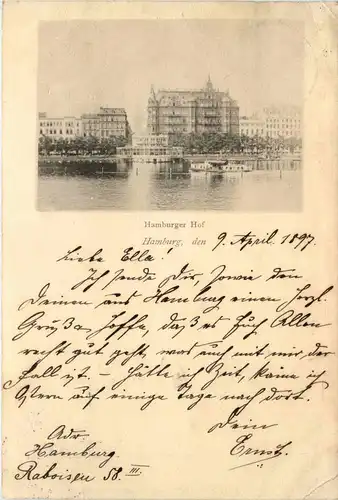 Hamburger Hof
Hamburg, den 9. April 1897.
Liebe Ella!
Ich sende Dir, sowie den
Deinen aus Hamburg einen herzl.
Gruß, hoffe, daß es Euch Allen
recht gut geht, was auch mit mir der
Fall ist. – Hätte ich Zeit, käme ich
Ostern auf einige Tage nach dort.
Dein
Ernst.
Adr.
Hamburg.
Raboisen 58. III.